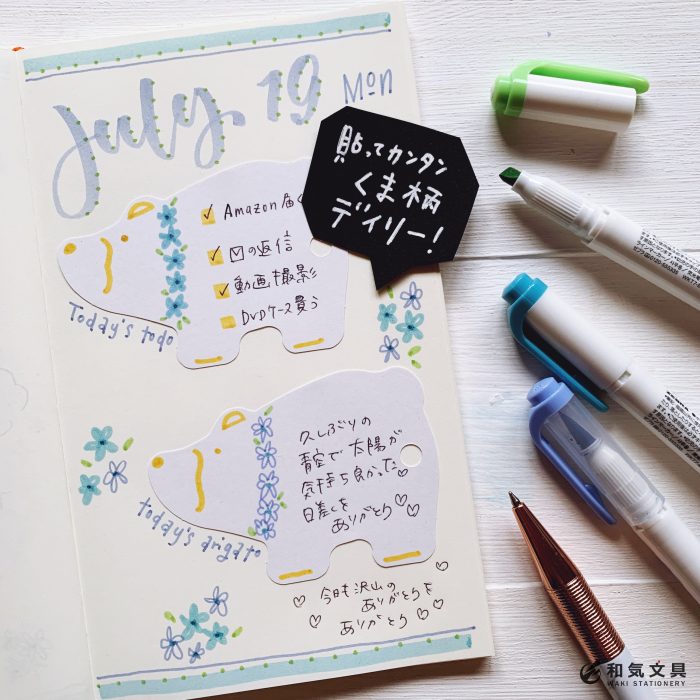 July. 19 Mon
貼ってカンタン
くま柄
デイリー!
Amazon届く
の返信
動画撮影
DVDケース買う
Today's todo
久しぶりの
青空で太陽が
気持ち良かった
日差しを
ありがとう
today's arigato
今日も沢山の
ありがとうを
ありがとう
和気文具
WAKI STATIONERY